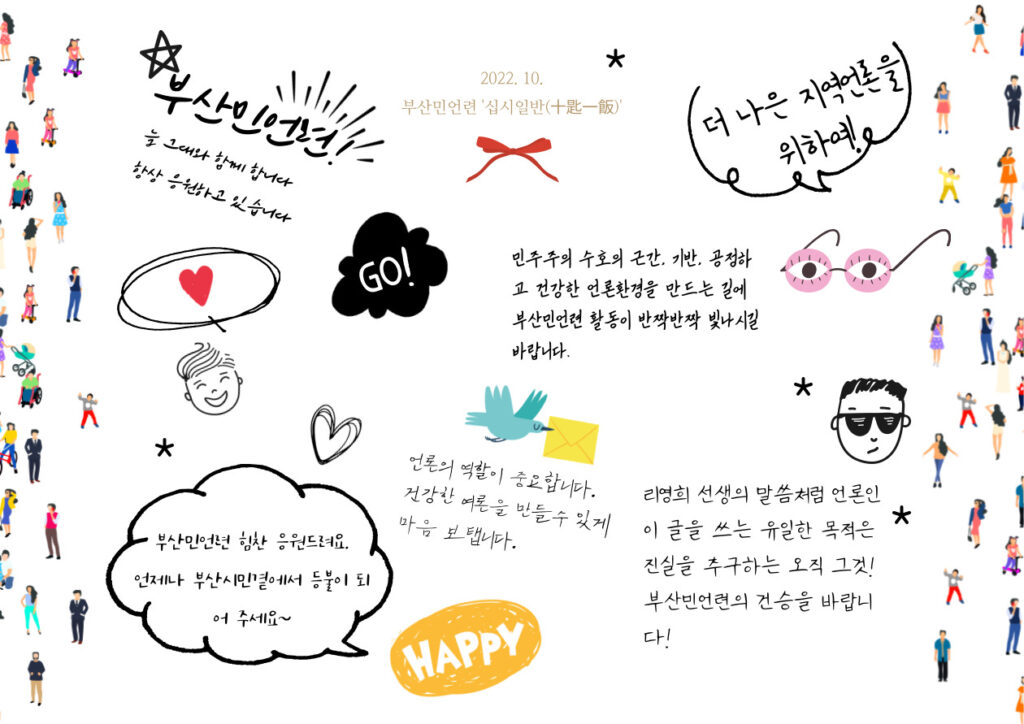 2022. 10.
부산민언련 '십시일반(十匙一飯)'
부산민언련!
늘 그대와 함께 합니다
항상 응원하고 있습니다
더 나은 지역언론을
위하여!
GO!
민주주의 수호의 근간, 기반, 공정하
고 건강한 언론환경을 만드는 길에
부산민언련 활동이 반짝반짝 빛나시길
바랍니다.
언론의 역할이 중요합니다.
건강한 여론을 만들 수 있게
마음 보탭니다.
리영희 선생의 말씀처럼 언론인
이 글을 쓰는 유일한 목적은
진실을 추구하는 오직 그것!
부산민언련의 건승을 바랍니
다!
부산민언련 힘찬 응원드려요.
언제나 부산시민곁에서 등불이 되
어 주세요~
HAPPY